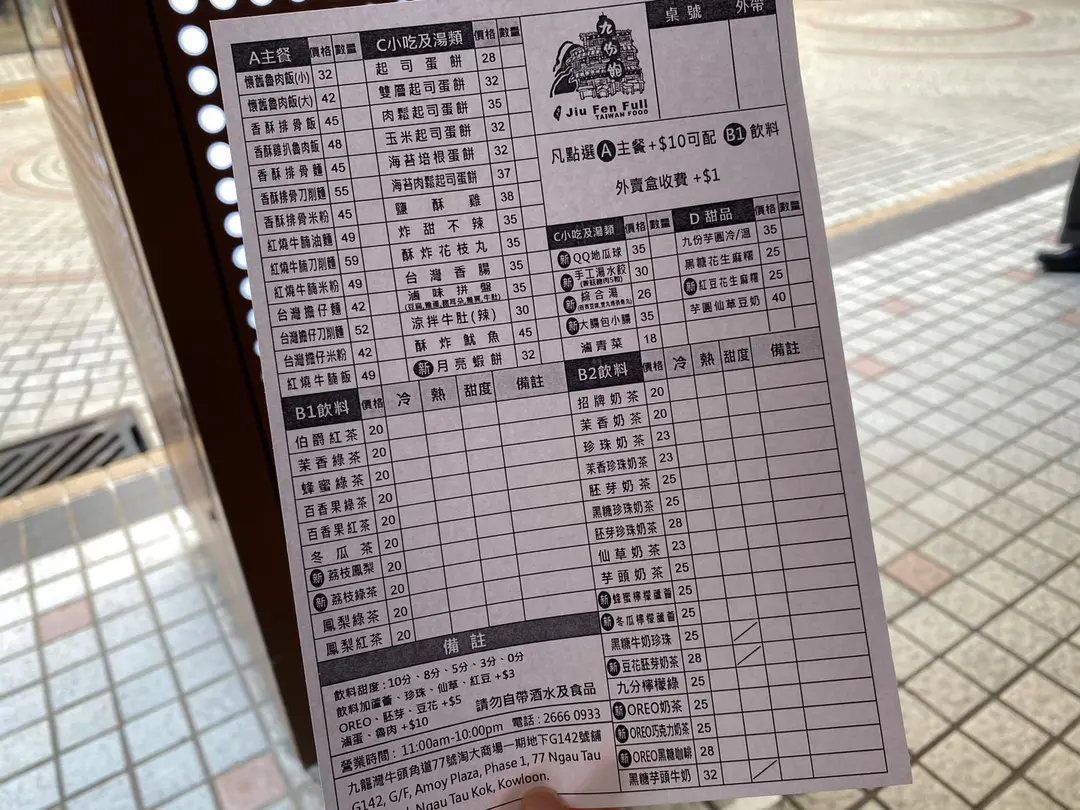 A主餐 價格 數量
懷舊魯肉飯(小) 32
懷舊魯肉飯(大) 42
香酥排骨飯 45
香酥雞扒魯肉飯 48
香酥排骨麵 45
香酥排骨刀削麵 55
香酥排骨米粉 45
紅燒牛腩油麵 49
紅燒牛腩刀削麵 59
紅燒牛腩米粉 49
台灣擔仔麵 42
台灣擔仔刀削麵 52
台灣擔仔米粉 42
紅燒牛腩飯 49
C小吃及湯類 價格 數量
起司蛋餅 28
雙層起司蛋餅 32
肉鬆起司蛋餅 35
玉米起司蛋餅 32
海苔培根蛋餅 32
海苔肉鬆起司蛋餅 37
鹽酥雞 38
炸甜不辣 35
酥炸花枝丸 35
台灣香腸 35
滷味拼盤 35
涼拌牛肚(辣) 30
酥炸魷魚 45
新 月亮蝦餅 32
桌號 外帶
九份的
Jiu Fen Full
TAIWAN FOOD
凡點選A主餐+$10可配 B1飲料
外賣盒收費 +$1
C小吃及湯類 價格 數量
新 QQ地瓜球 35
新 手工湯水餃 30
新 綜合湯 26
新 大腸包小腸 35
滷青菜 18
D 甜品 價格 數量
九份芋圓冷/溫 35
黑糖花生麻糬 25
新 紅豆花生麻糬 25
芋圓仙草豆奶 40
B1飲料 價格 冷 熱 甜度 備註
伯爵紅茶 20
茉香綠茶 20
蜂蜜綠茶 20
百香果綠茶 20
百香果紅茶 20
冬瓜茶 20
新 荔枝鳳梨 20
新 荔枝綠茶 20
鳳梨綠茶 20
鳳梨紅茶 20
B2飲料 價格 冷 熱 甜度 備註
招牌奶茶 20
茉香奶茶 20
珍珠奶茶 23
茉香珍珠奶茶 23
胚芽奶茶 25
黑糖珍珠奶茶 25
胚芽珍珠奶茶 28
仙草奶茶 23
芋頭奶茶 25
新 蜂蜜檸檬蘆薈 25
新 冬瓜檸檬蘆薈 25
黑糖牛奶珍珠 25
新 豆花胚芽奶茶 28
九分檸檬綠 25
新 OREO奶茶 25
新 OREO巧克力奶茶 25
新 OREO黑糖咖啡 28
黑糖芋頭牛奶 32
備註
飲料甜度:10分、8分、5分、3分、0分
飲料加蘆薈、珍珠、仙草、紅豆 +$3
OREO、胚芽、豆花 +$5 請勿自帶酒水及食品
滷蛋、魯肉 +$10
營業時間:11:00am-10:00pm 電話:2666 0933
九龍灣牛頭角道77號淘大商場一期地下G142號舖
G142, G/F, Amoy Plaza, Phase 1, 77 Ngau Tau
Ngau Tau Kok, Kowloon.